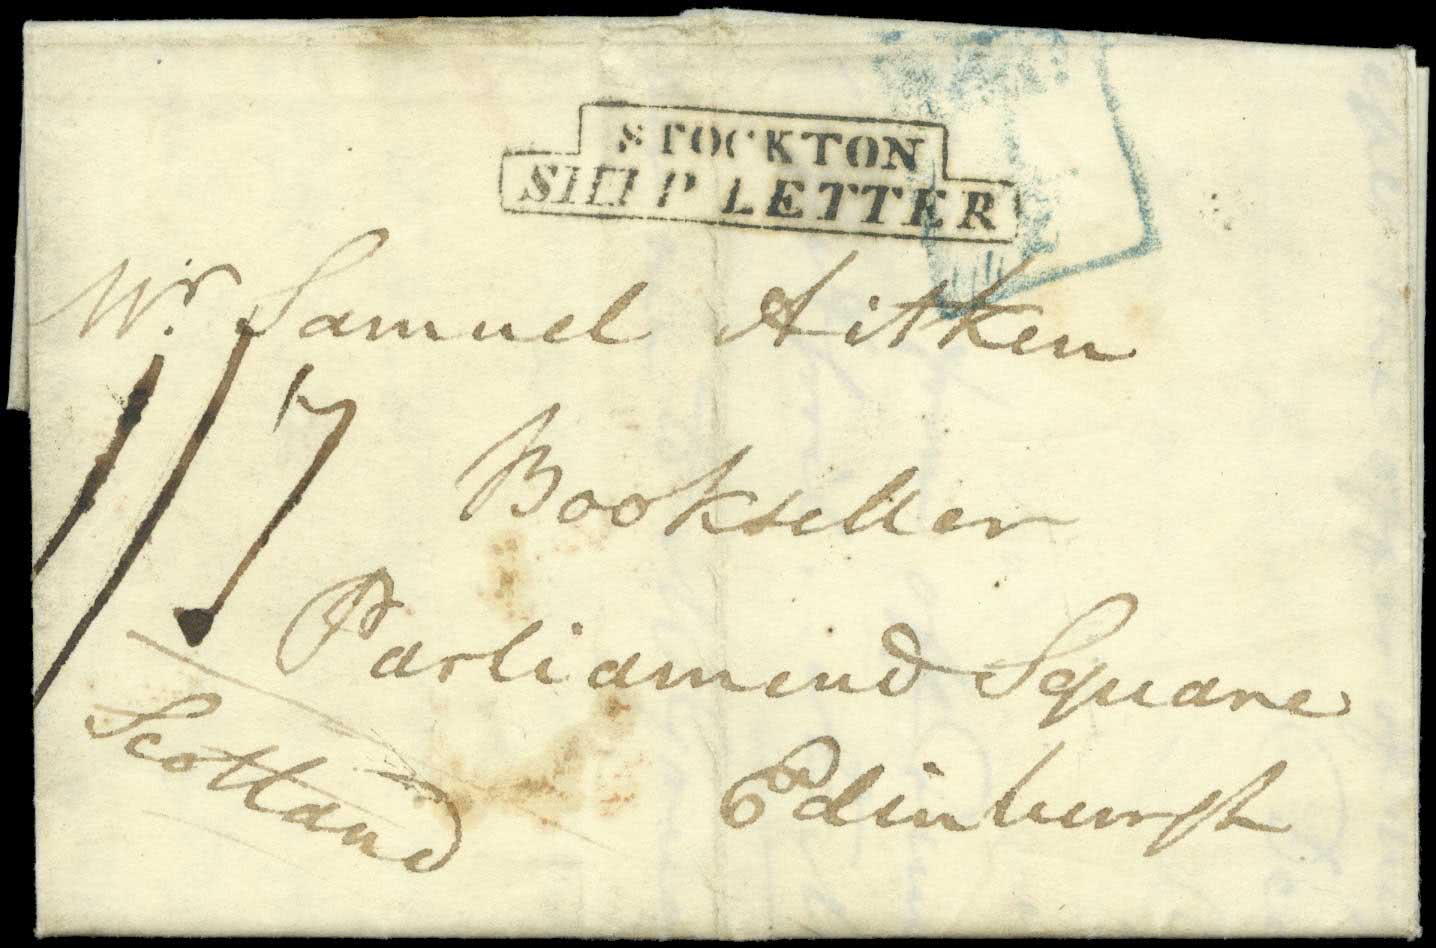 STOCKTON
SHIP LETTER
Mr. Samuel Aitken
1/7
Bookseller
Parliamend Square
Edinburgh
Scotland